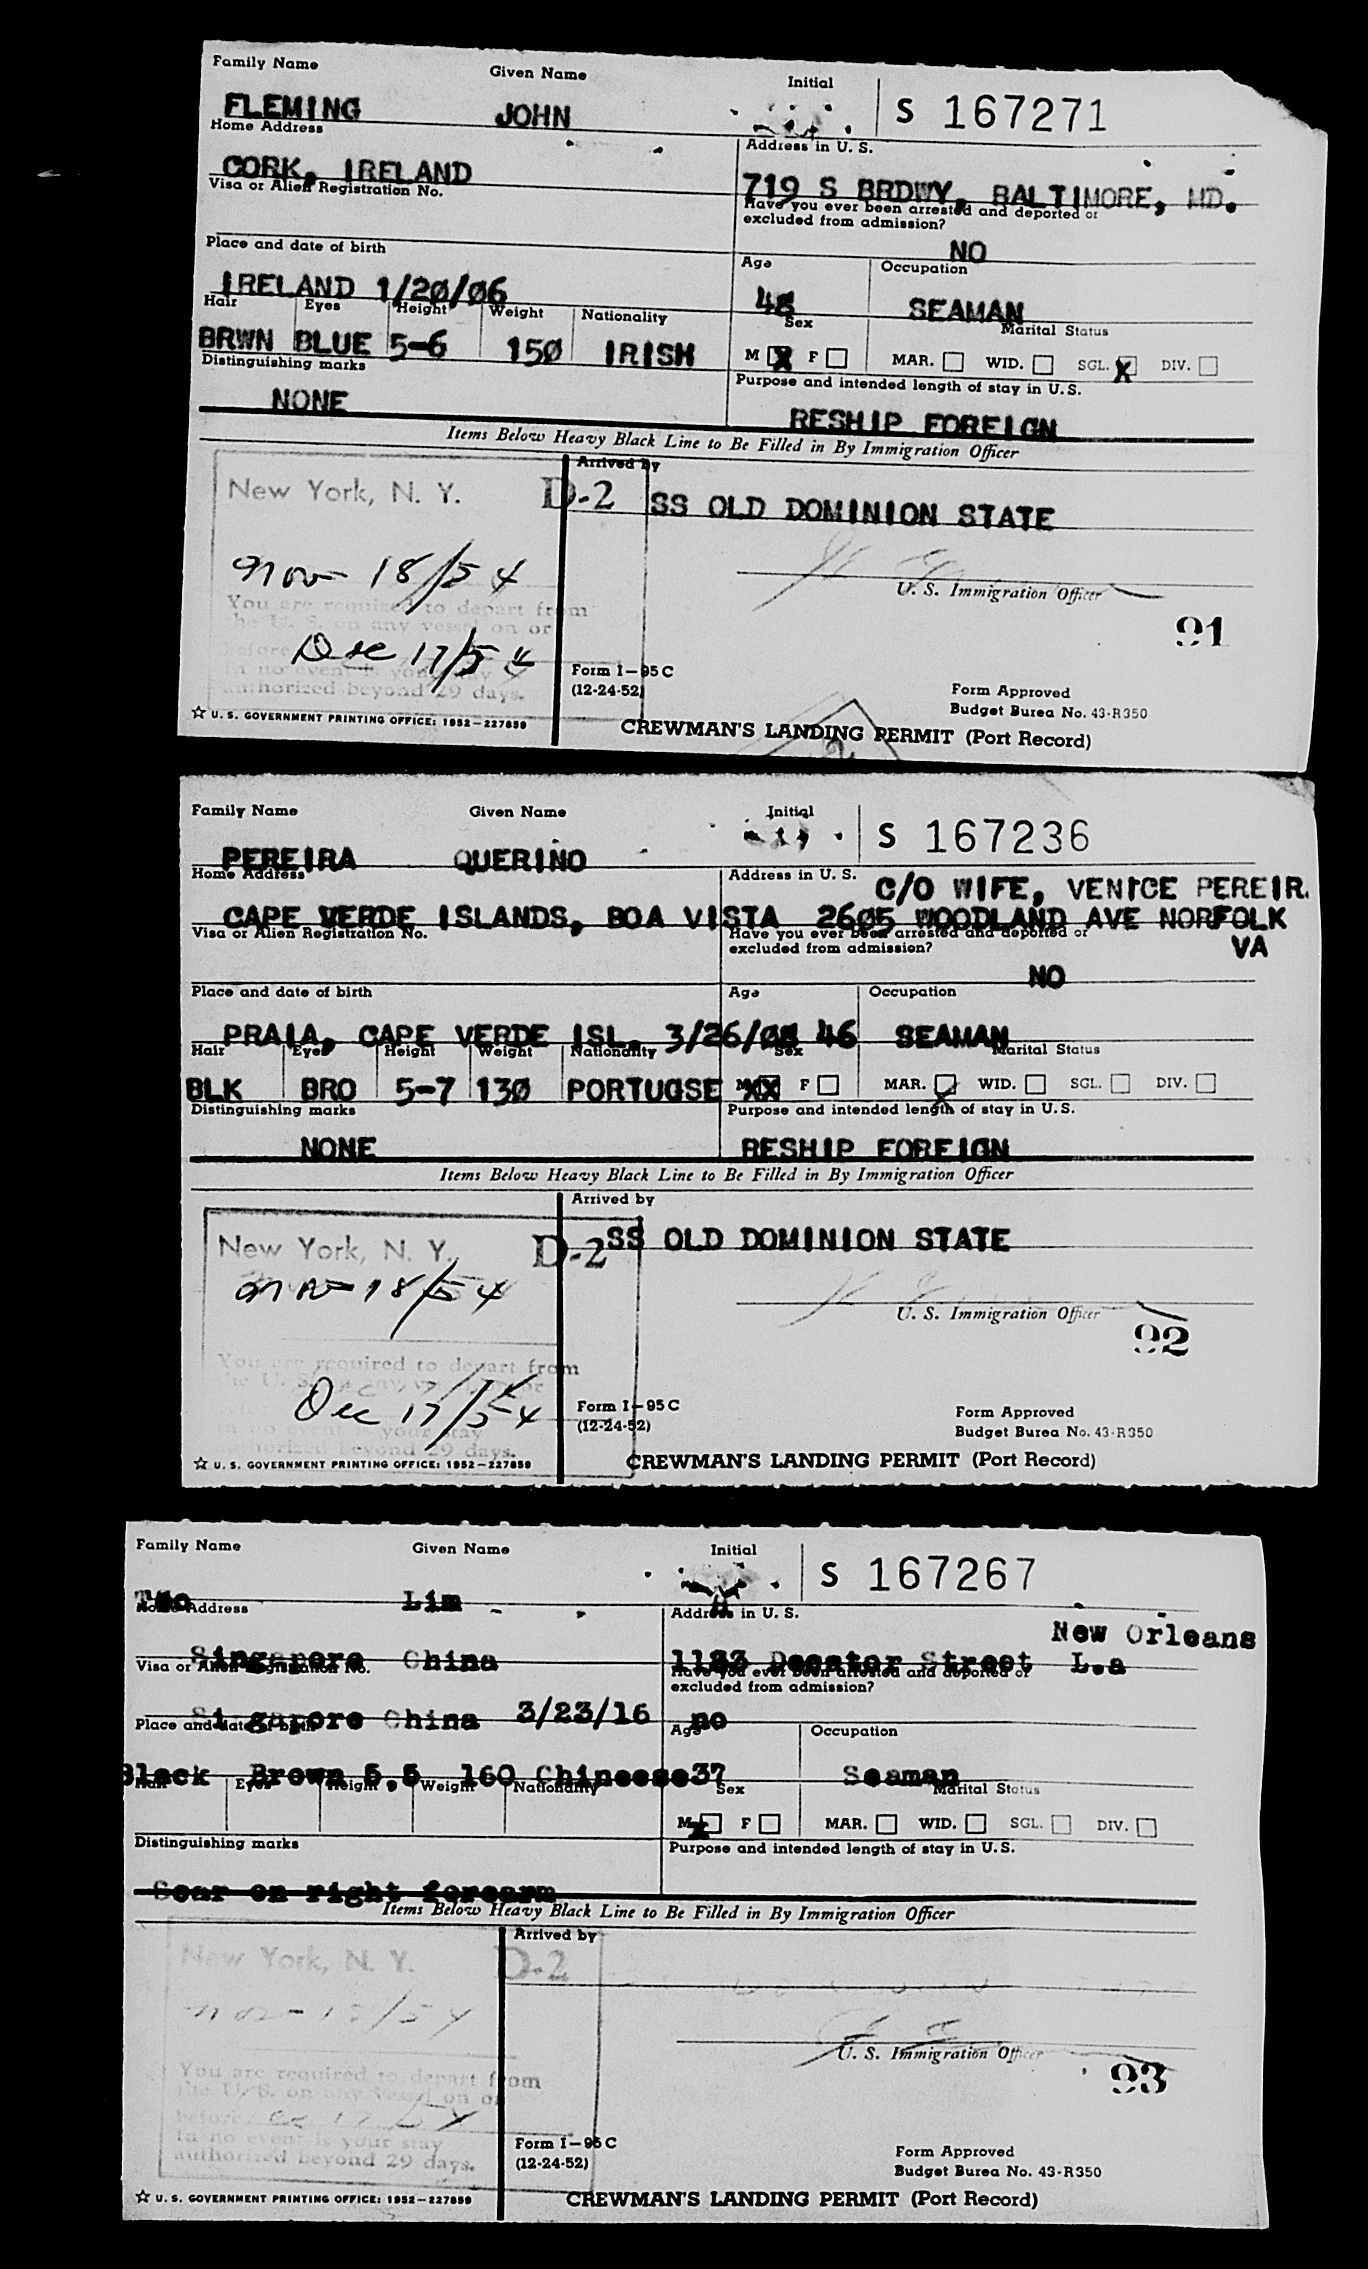 Family Name Given Name Initial S 167271
FLEMING JOHN
Home Address Address in U. S.
CORK, IRELAND 719 S BRDWY, BALTIMORE, MD.
Visa or Alien Registration No. Have you ever been arrested and deported or
excluded from admission?
NO
Place and date of birth Age Occupation
IRELAND 1/20/06 48 SEAMAN
Hair Eyes Height Weight Nationality Sex Marital Status
BRWN BLUE 5-6 150 IRISH M X F MAR. WID. SGL. X DIV.
Distinguishing marks Purpose and intended length of stay in U.S.
NONE RESHIP FOREIGN
Items Below Heavy Black Line to Be Filled in By Immigration Officer
Arrived by
New York, N. Y. D-2 SS OLD DOMINION STATE
Nov 18/54
U. S. Immigration Officer
You are required to depart from
the U. S. on any vessel on or
91
before Dec 17/54
In no event is your stay
authorized beyond 29 days.
Form I-95 C
(12-24-52)
Form Approved
Budget Burea No. 43-R350
☆ U. S. GOVERNMENT PRINTING OFFICE: 1952-227859
CREWMAN'S LANDING PERMIT (Port Record)
Family Name Given Name Initial S 167236
PEREIRA QUERINO
Home Address Address in U. S. C/O WIFE, VENICE PEREIR.
CAPE VERDE ISLANDS, BOA VISTA 2605 WOODLAND AVE NORFOLK
Visa or Alien Registration No. Have you ever been arrested and deported or
excluded from admission? VA
NO
Place and date of birth Age Occupation
PRAIA, CAPE VERDE ISL. 3/26/08 46 SEAMAN
Hair Eyes Height Weight Nationality Sex Marital Status
BLK BRO 5-7 130 PORTUGSE M XX F MAR. X WID. SGL. DIV.
Distinguishing marks Purpose and intended length of stay in U.S.
NONE RESHIP FOREIGN
Items Below Heavy Black Line to Be Filled in By Immigration Officer
Arrived by
New York, N. Y. D-2 SS OLD DOMINION STATE
Nov 18/54
U. S. Immigration Officer
92
You are required to depart from
the U. S. on any vessel on or
Dec 17/54
in no event is your stay
authorized beyond 29 days.
Form I-95 C
(12-24-52)
Form Approved
Budget Burea No. 43-R350
☆ U. S. GOVERNMENT PRINTING OFFICE: 1952-227859
CREWMAN'S LANDING PERMIT (Port Record)
Family Name Given Name Initial S 167267
Lim
Home Address Address in U. S.
New Orleans
Singapore China Street L.a
Visa or Alien Registration No. Have you ever been arrested and deported or
excluded from admission?
Singapore China 3/23/16 no
Place and date of birth Age Occupation
Black Brown 5.5 160 Chineese 37 Seaman
Hair Eyes Height Weight Nationality Sex Marital Status
M X F MAR. WID. SGL. DIV.
Distinguishing marks Purpose and intended length of stay in U.S.
Scar on right forearm
Items Below Heavy Black Line to Be Filled in By Immigration Officer
Arrived by
New York, N. Y. D-2
Nov 18/54
U. S. Immigration Officer
93
You are required to depart from
the U. S. on any vessel on or
before Dec 17/54
In no event is your stay
authorized beyond 29 days.
Form I-95 C
(12-24-52)
Form Approved
Budget Burea No. 43-R350
☆ U. S. GOVERNMENT PRINTING OFFICE: 1952-227859
CREWMAN'S LANDING PERMIT (Port Record)